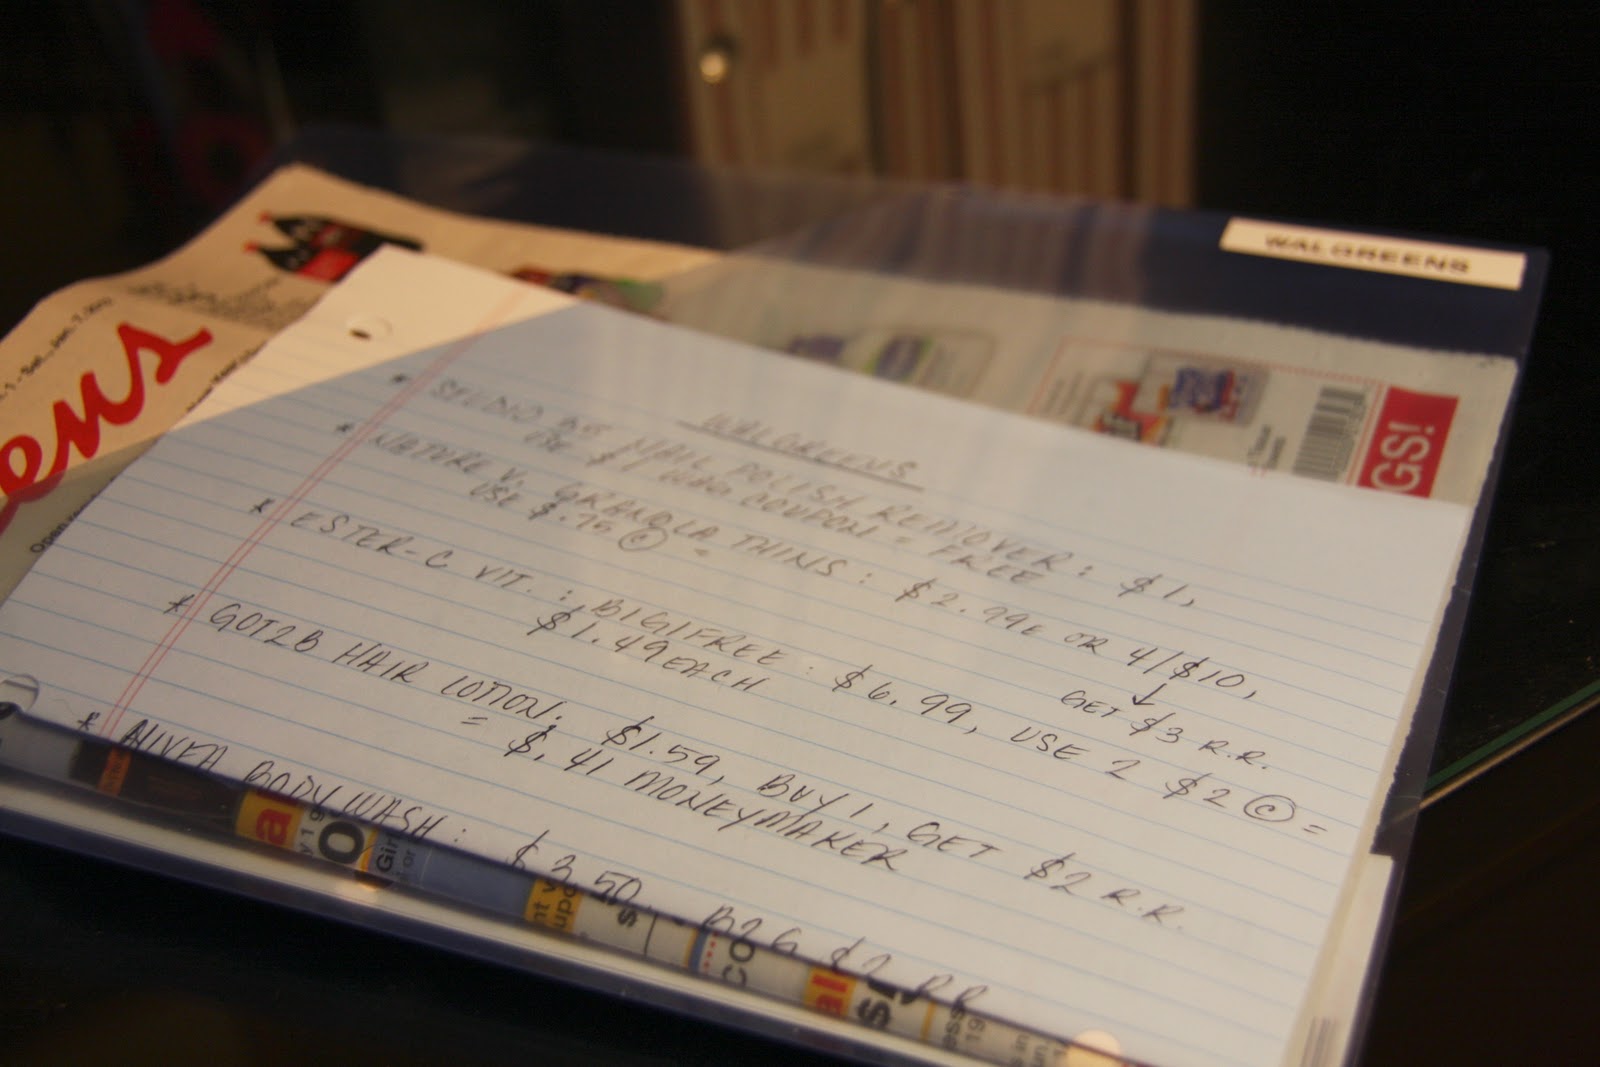 WALGREENS
ens
1 - Sat., Jan. 7, 2012
Open
GS!
WALGREENS
* STUDIO 35 NAIL POLISH REMOVER: $1,
USE $1 WAG COUPON = FREE
* NATURE V. GRANOLA THINS: $2.99E OR 4/$10,
USE $.75 © =
↓
GET $3 R.R.
* ESTER-C VIT.: B1G1FREE: $6.99, USE 2 $2 © =
$1.49 EACH
* GOT2B HAIR LOTION: $1.59, BUY 1, GET $2 R.R.
= $.41 MONEYMAKER
* NIVEA BODY WASH: $3.50, B2G $2 RR